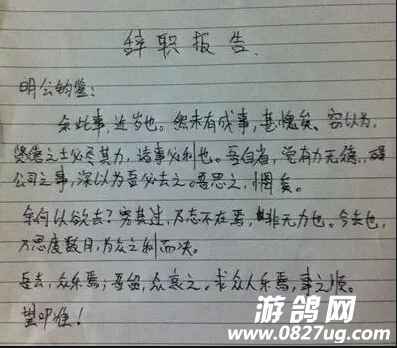 辞职报告
明公钧鉴：
余此事，近岁也。然未有成事，甚愧矣。窃以为，
贤德之士必尽其力，诸事必利也。吾自省，觉有力无德，碍
公司之事，深以为吾必去之。吾思之，惆矣。
余何以欲去？究其过，乃志不在焉，非无力也。今去也，
乃思度数日，为众之利而决。
吾去，众乐焉；吾留，众哀之。求众人乐焉，事之顺。
望叩准！
游鸽网
www.0827ug.com